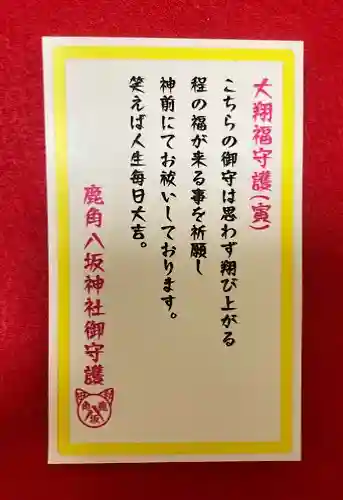 大翔福守護(寅)
こちらの御守は思わず翔び上がる
程の福が来る事を祈願し
神前にてお祓いしております。
笑えば人生毎日大吉。
鹿角八坂神社御守護
鹿角八坂